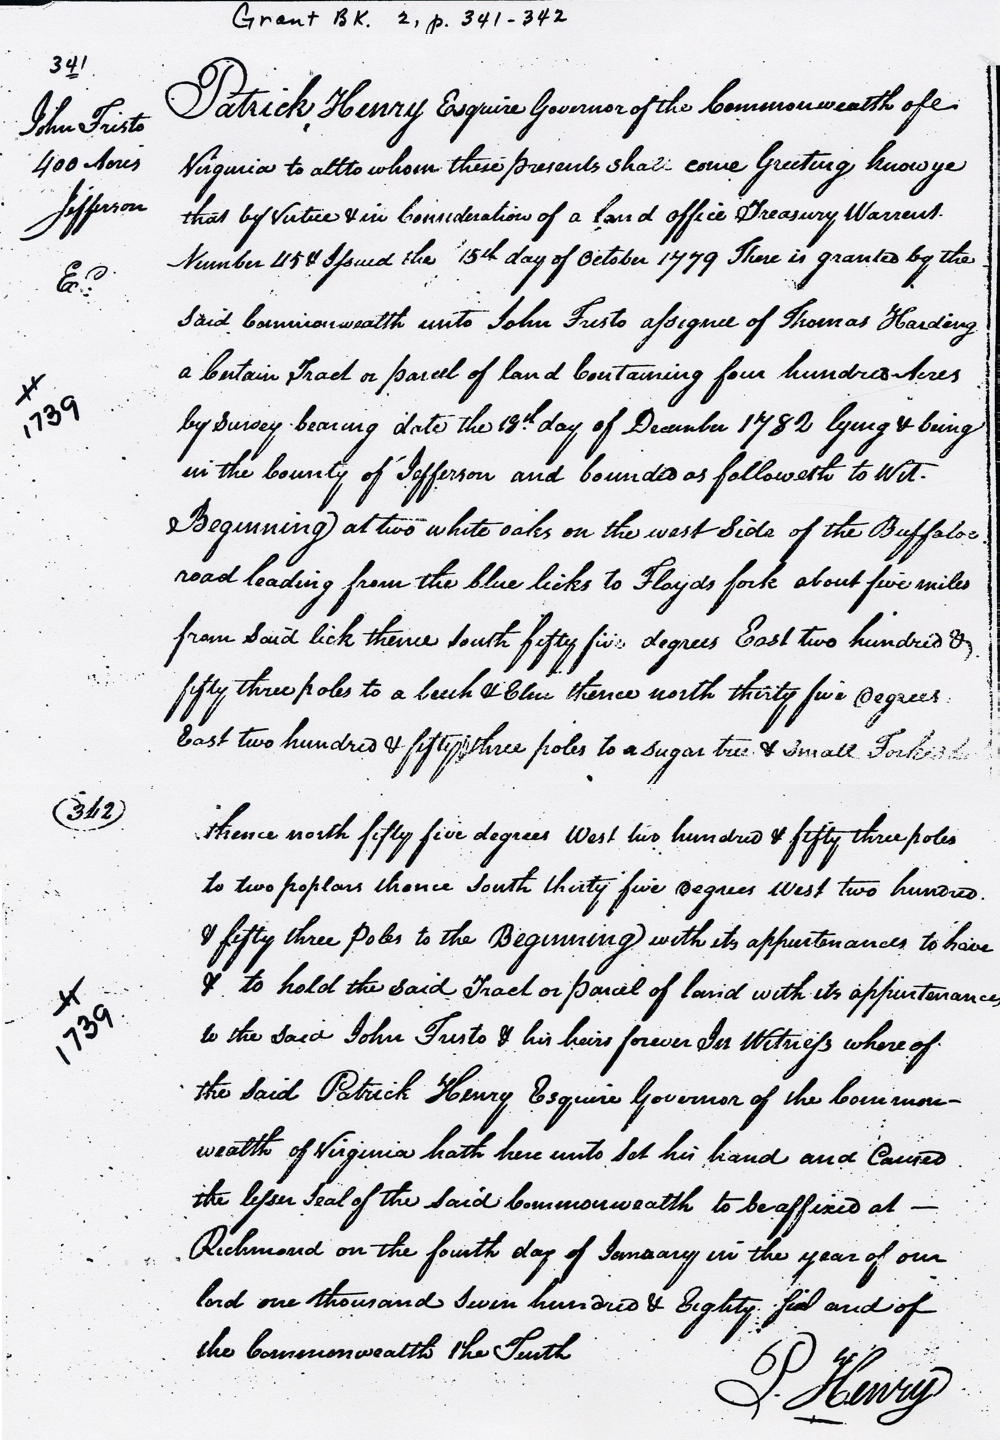 Grant BK. 2, p. 341-342
341
John Fristo
400 Acres
Jefferson
Ex?
# 1739
Patrick Henry Esquire Governor of the Commonwealth of
Virginia to all to whom these presents shall come Greeting know ye
that by Virtue & in Consideration of a land office Treasury Warrent
Number 45 & Issued the 15th day of October 1779 There is granted by the
said Commonwealth unto John Fristo assignee of Thomas Harding
a Certain Tract or parcel of land Containing four hundred Acres
by survey bearing date the 19th day of December 1782 lying & being
in the County of Jefferson and bounded as followeth to Wit.
Beginning) at two white oaks on the west Side of the Buffaloe
road leading from the blue licks to Floyds fork about five miles
from said lick thence South fifty five degrees East two hundred &
fifty three poles to a beech & Elm thence north thirty five Degrees
East two hundred & fifty three poles to a sugar tree & small
(342)
thence north fifty five degrees West two hundred & fifty three poles
to two poplars thence South thirty five Degrees West two hundred
& fifty three Poles to the Beginning) with its appurtenances to have
& to hold the said Tract or parcel of land with its appurtenances
# 1739
to the said John Fristo & his heirs forever In Witness where of
the said Patrick Henry Esquire Governor of the Common-
wealth of Virginia hath here unto Set his hand and Caused
the lesser Seal of the said Commonwealth to be affixed at —
Richmond on the fourth day of January in the year of our
lord one thousand Seven hundred & Eighty and of
the Commonwealth the Tenth
P. Henry